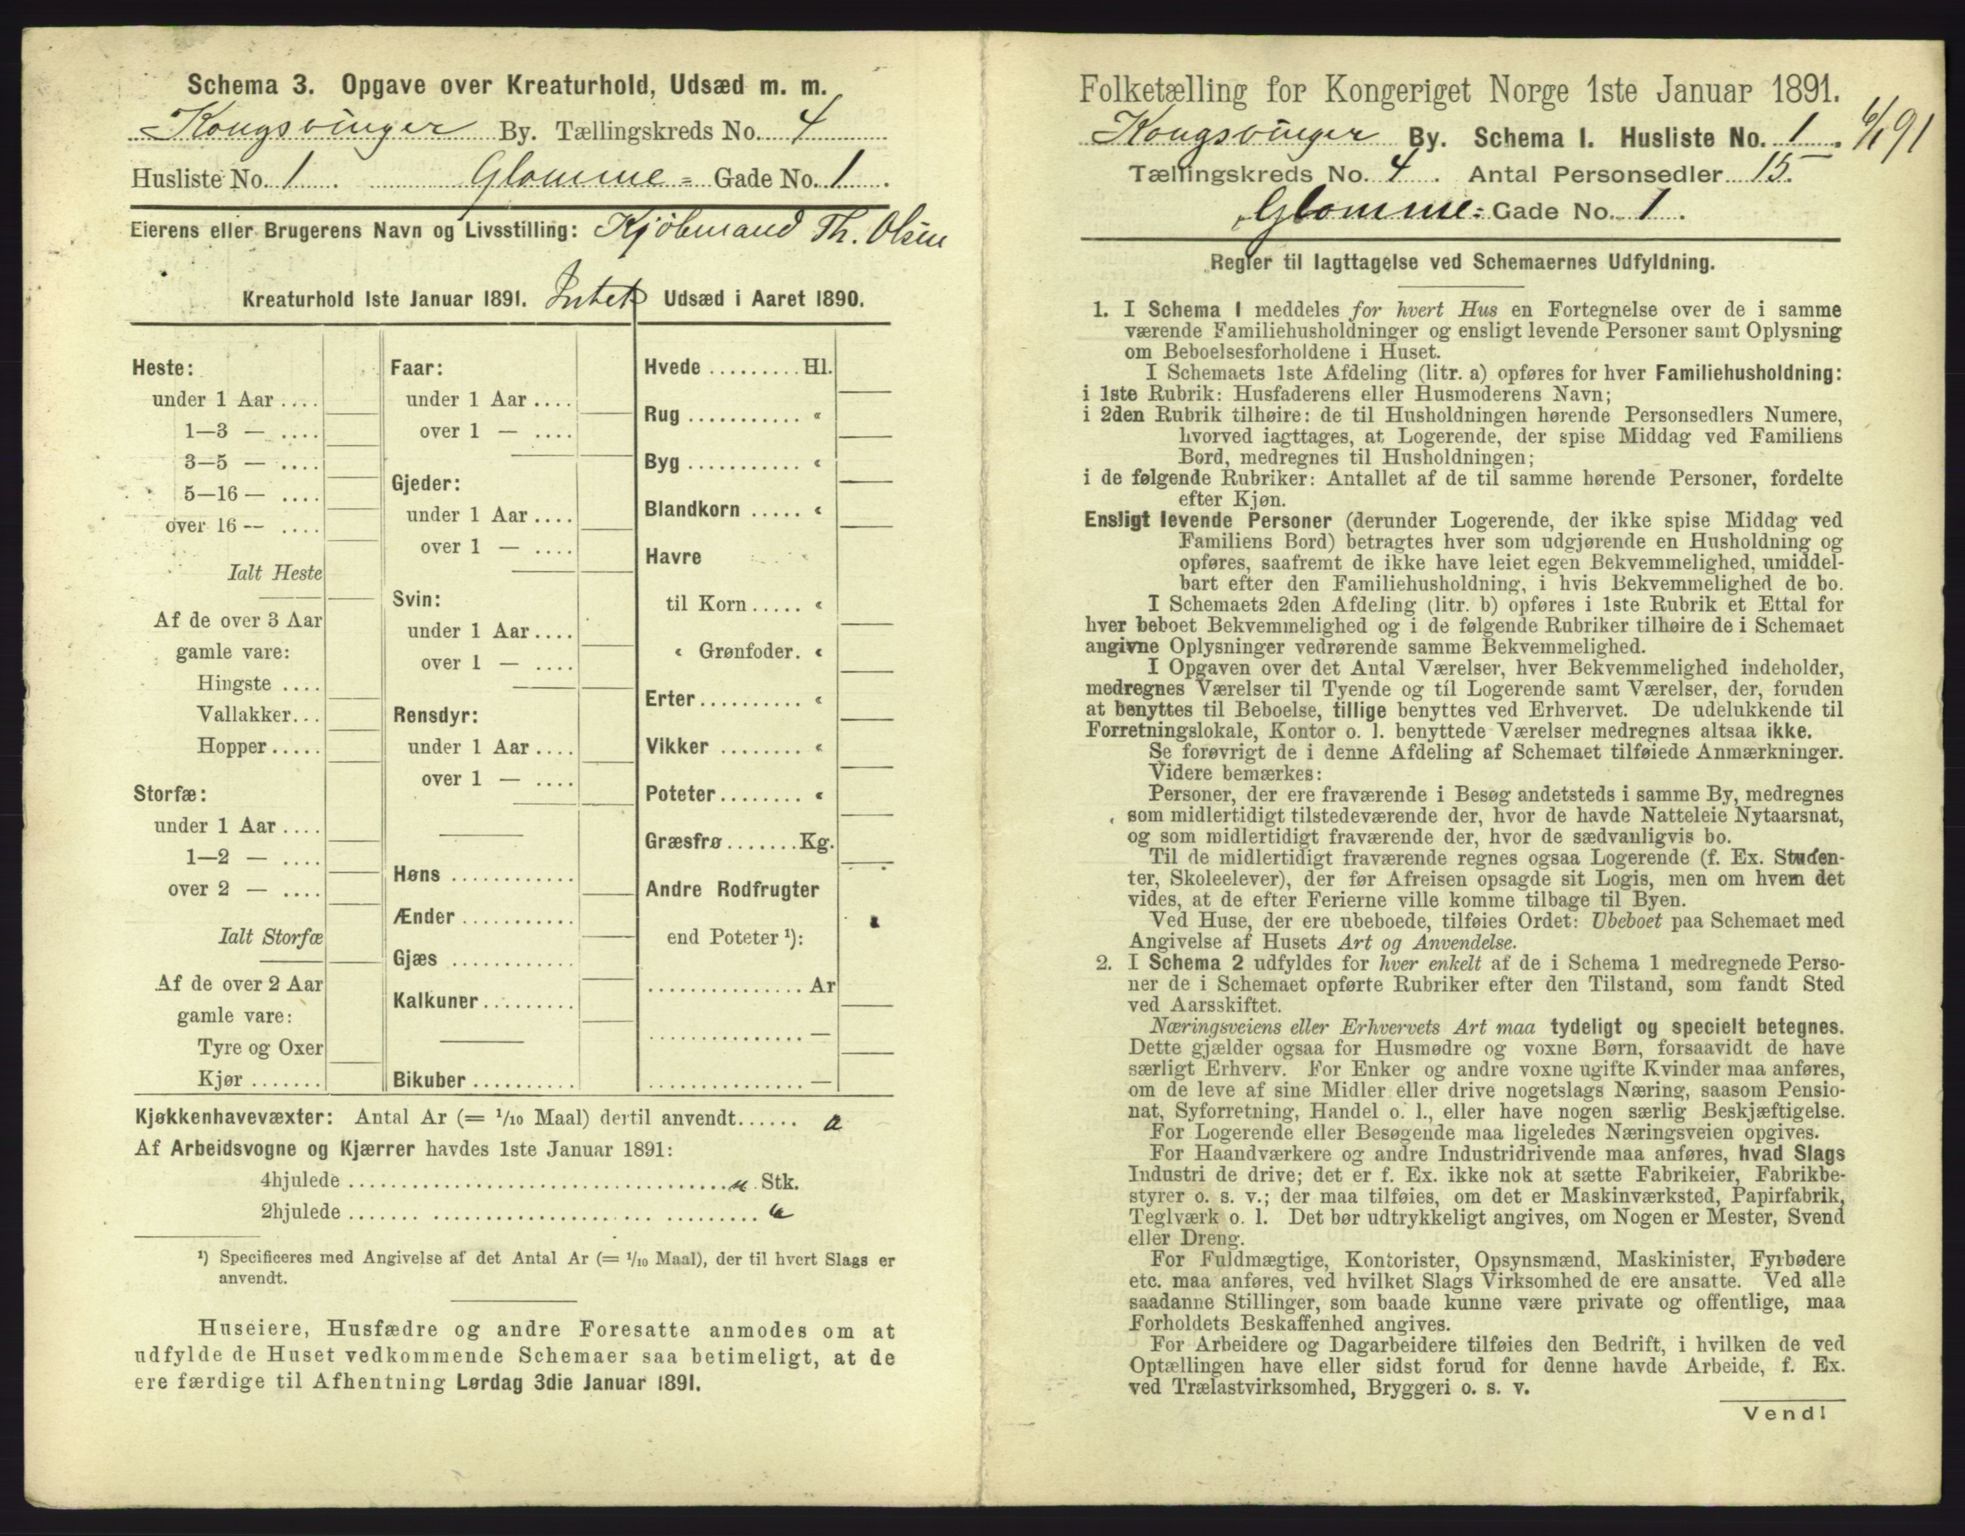 Schema 3. Opgave over Kreaturhold, Udsæd m. m.
Kongsvinger By. Tællingskreds No. 4
Husliste No. 1. Glomme= Gade No. 1.
Eierens eller Brugerens Navn og Livsstilling: Kjøbmand Th. Olsen
Kreaturhold 1ste Januar 1891. Intet Udsæd i Aaret 1890.
Heste:
under 1 Aar ....
1—3 — ....
3—5 — ....
5—16 — ....
over 16 — ....
Ialt Heste
Af de over 3 Aar
gamle vare:
Hingste ....
Vallakker...
Hopper.....
Storfæ:
under 1 Aar ....
1—2 — ....
over 2 — ....
Ialt Storfæ
Af de over 2 Aar
gamle vare:
Tyre og Oxer
Kjør .......
Faar:
under 1 Aar ....
over 1 — ....
Gjeder:
under 1 Aar ....
over 1 — ....
Svin:
under 1 Aar ....
over 1 — ....
Rensdyr:
under 1 Aar ....
over 1 — ....
Høns ............
Ænder ...........
Gjæs ............
Kalkuner.........
Bikuber ..........
Hvede ......... Hl.
Rug ........... «
Byg ........... «
Blandkorn ..... «
Havre
til Korn ..... «
« Grønfoder. «
Erter.......... «
Vikker ........ «
Poteter........ «
Græsfrø.......Kg.
Andre Rodfrugter
end Poteter ¹):
............... Ar
............... —
............... —
Kjøkkenhavevæxter: Antal Ar (= 1/10 Maal) dertil anvendt...... "
Af Arbeidsvogne og Kjærrer havdes 1ste Januar 1891:
4hjulede .................................... " Stk.
2hjulede ....... ..................... ......... "
¹) Specificeres med Angivelse af det Antal Ar (= 1/10 Maal), der til hvert Slags er
anvendt.
Huseiere, Husfædre og andre Foresatte anmodes om at
udfylde de Huset vedkommende Schemaer saa betimeligt, at de
ere færdige til Afhentning Lørdag 3die Januar 1891.
Folketælling for Kongeriget Norge 1ste Januar 1891.
Kongsvinger By. Schema I. Husliste No. 1. 6/1 91
Tællingskreds No. 4. Antal Personsedler 15.
Glomme= Gade No. 1.
Regler til Iagttagelse ved Schemaernes Udfyldning.
1. I Schema 1 meddeles for hvert Hus en Fortegnelse over de i samme
værende Familiehusholdninger og ensligt levende Personer samt Oplysning
om Beboelsesforholdene i Huset.
I Schemaets 1ste Afdeling (litr. a) opføres for hver Familiehusholdning:
i 1ste Rubrik: Husfaderens eller Husmoderens Navn;
i 2den Rubrik tilhøire: de til Husholdningen hørende Personsedlers Numere,
hvorved iagttages, at Logerende, der spise Middag ved Familiens
Bord, medregnes til Husholdningen;
i de følgende Rubriker: Antallet af de til samme hørende Personer, fordelte
efter Kjøn.
Ensligt levende Personer (derunder Logerende, der ikke spise Middag ved
Familiens Bord) betragtes hver som udgjørende en Husholdning og
opføres, saafremt de ikke have leiet egen Bekvemmelighed, umiddel-
bart efter den Familiehusholdning, i hvis Bekvemmelighed de bo.
I Schemaets 2den Afdeling (litr. b) opføres i 1ste Rubrik et Ettal for
hver beboet Bekvemmelighed og i de følgende Rubriker tilhøire de i Schemaet
angivne Oplysninger vedrørende samme Bekvemmelighed.
I Opgaven over det Antal Værelser, hver Bekvemmelighed indeholder,
medregnes Værelser til Tyende og til Logerende samt Værelser, der, foruden
at benyttes til Beboelse, tillige benyttes ved Erhvervet. De udelukkende til
Forretningslokale, Kontor o. l. benyttede Værelser medregnes altsaa ikke.
Se forøvrigt de i denne Afdeling af Schemaet tilføiede Anmærkninger.
Videre bemærkes:
Personer, der ere fraværende i Besøg andetsteds i samme By, medregnes
som midlertidigt tilstedeværende der, hvor de havde Natteleie Nytaarsnat,
og som midlertidigt fraværende der, hvor de sædvanligvis bo.
Til de midlertidigt fraværende regnes ogsaa Logerende (f. Ex. Studen-
ter, Skoleelever), der før Afreisen opsagde sit Logis, men om hvem det
vides, at de efter Ferierne ville komme tilbage til Byen.
Ved Huse, der ere ubeboede, tilføies Ordet: Ubeboet paa Schemaet med
Angivelse af Husets Art og Anvendelse.
2. I Schema 2 udfyldes for hver enkelt af de i Schema 1 medregnede Perso-
ner de i Schemaet opførte Rubriker efter den Tilstand, som fandt Sted
ved Aarsskiftet.
Næringsveiens eller Erhvervets Art maa tydeligt og specielt betegnes.
Dette gjælder ogsaa for Husmødre og voxne Børn, forsaavidt de have
særligt Erhverv. For Enker og andre voxne ugifte Kvinder maa anføres,
om de leve af sine Midler eller drive nogetslags Næring, saasom Pensio-
nat, Syforretning, Handel o. l., eller have nogen særlig Beskjæftigelse.
For Logerende eller Besøgende maa ligeledes Næringsveien opgives.
For Haandværkere og andre Industridrivende maa anføres, hvad Slags
Industri de drive; det er f. Ex. ikke nok at sætte Fabrikeier, Fabrikbe-
styrer o. s. v.; der maa tilføies, om det er Maskinværksted, Papirfabrik,
Teglværk o. l. Det bør udtrykkeligt angives, om Nogen er Mester, Svend
eller Dreng.
For Fuldmægtige, Kontorister, Opsynsmænd, Maskinister, Fyrbødere
etc. maa anføres, ved hvilket Slags Virksomhed de ere ansatte. Ved alle
saadanne Stillinger, som baade kunne være private og offentlige, maa
Forholdets Beskaffenhed angives.
For Arbeidere og Dagarbeidere tilføies den Bedrift, i hvilken de ved
Optællingen have eller sidst forud for denne havde Arbeide, f. Ex.
ved Trælastvirksomhed, Bryggeri o. s. v.
Vend!